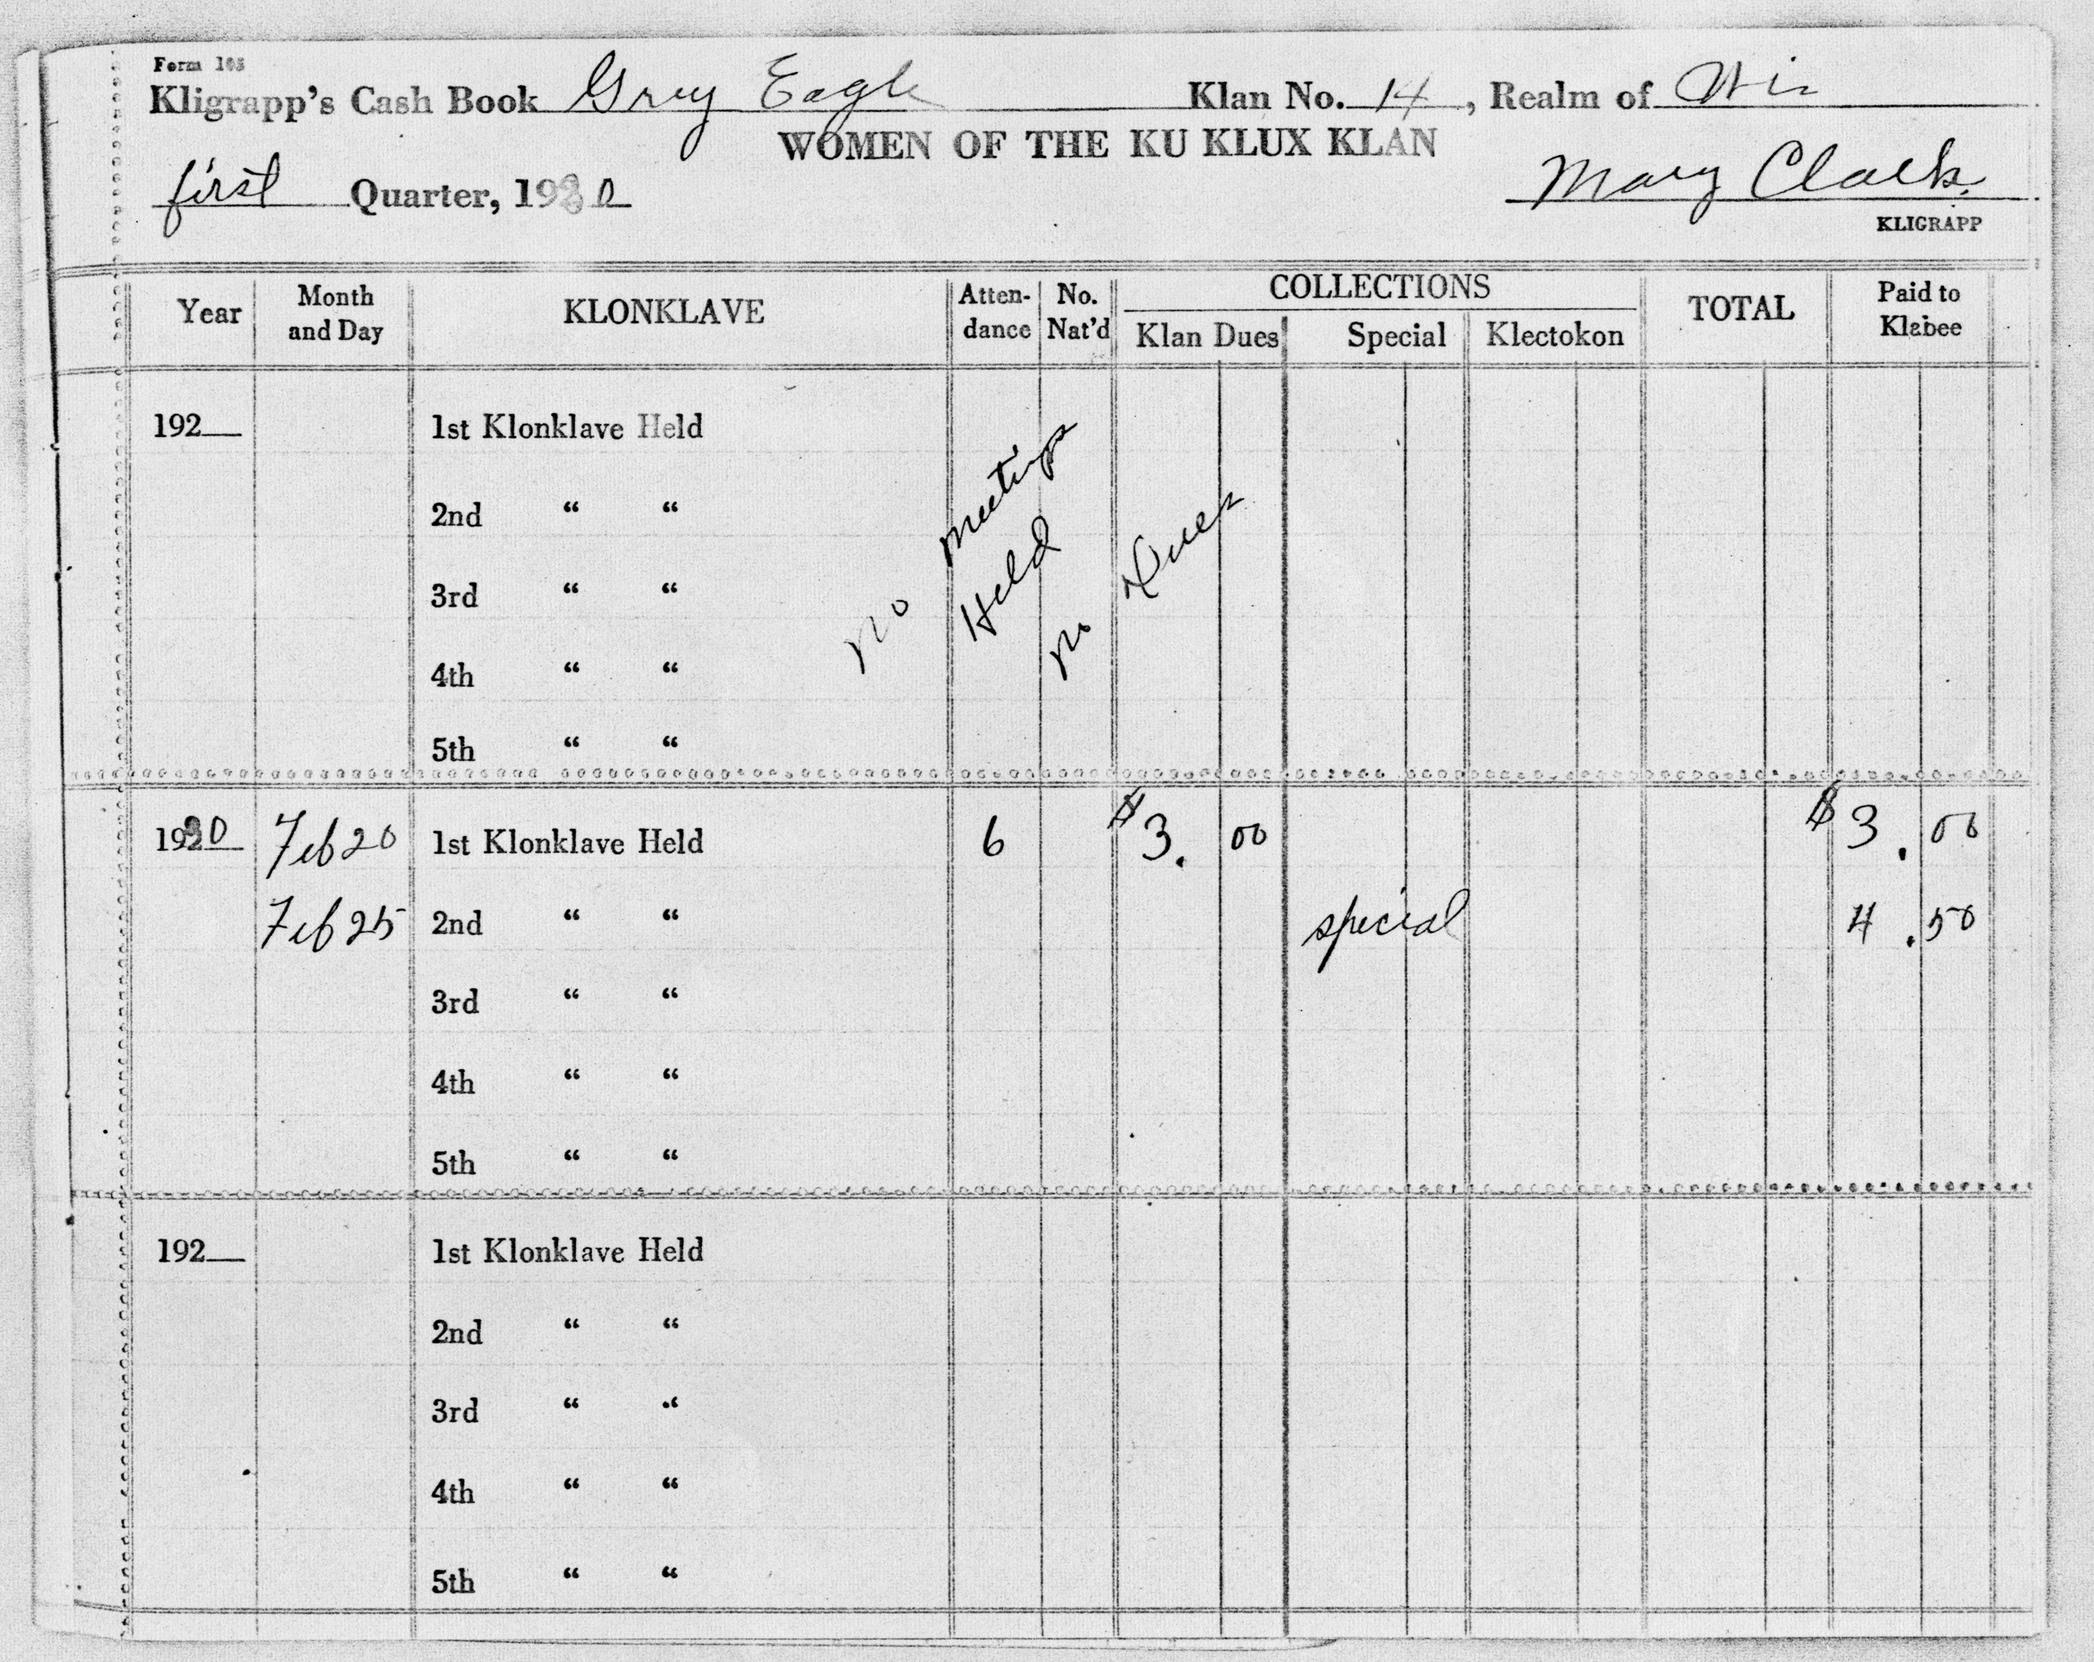 Form 105
Kligrapp's Cash Book Grey Eagle Klan No. 14, Realm of Wis
WOMEN OF THE KU KLUX KLAN
first Quarter, 1930 Mary Clark
KLIGRAPP
Year Month and Day KLONKLAVE Attendance No. Nat'd COLLECTIONS Klan Dues Special Klectokon TOTAL Paid to Klabee
192 1st Klonklave Held
2nd “ “
3rd “ “
4th “ “
5th “ “
no meetings
Held
no Dues
1930 Feb 20 1st Klonklave Held 6 $3. 00 $3.00
Feb 25 2nd “ “ special 4.50
3rd “ “
4th “ “
5th “ “
192 1st Klonklave Held
2nd “ “
3rd “ “
4th “ “
5th “ “